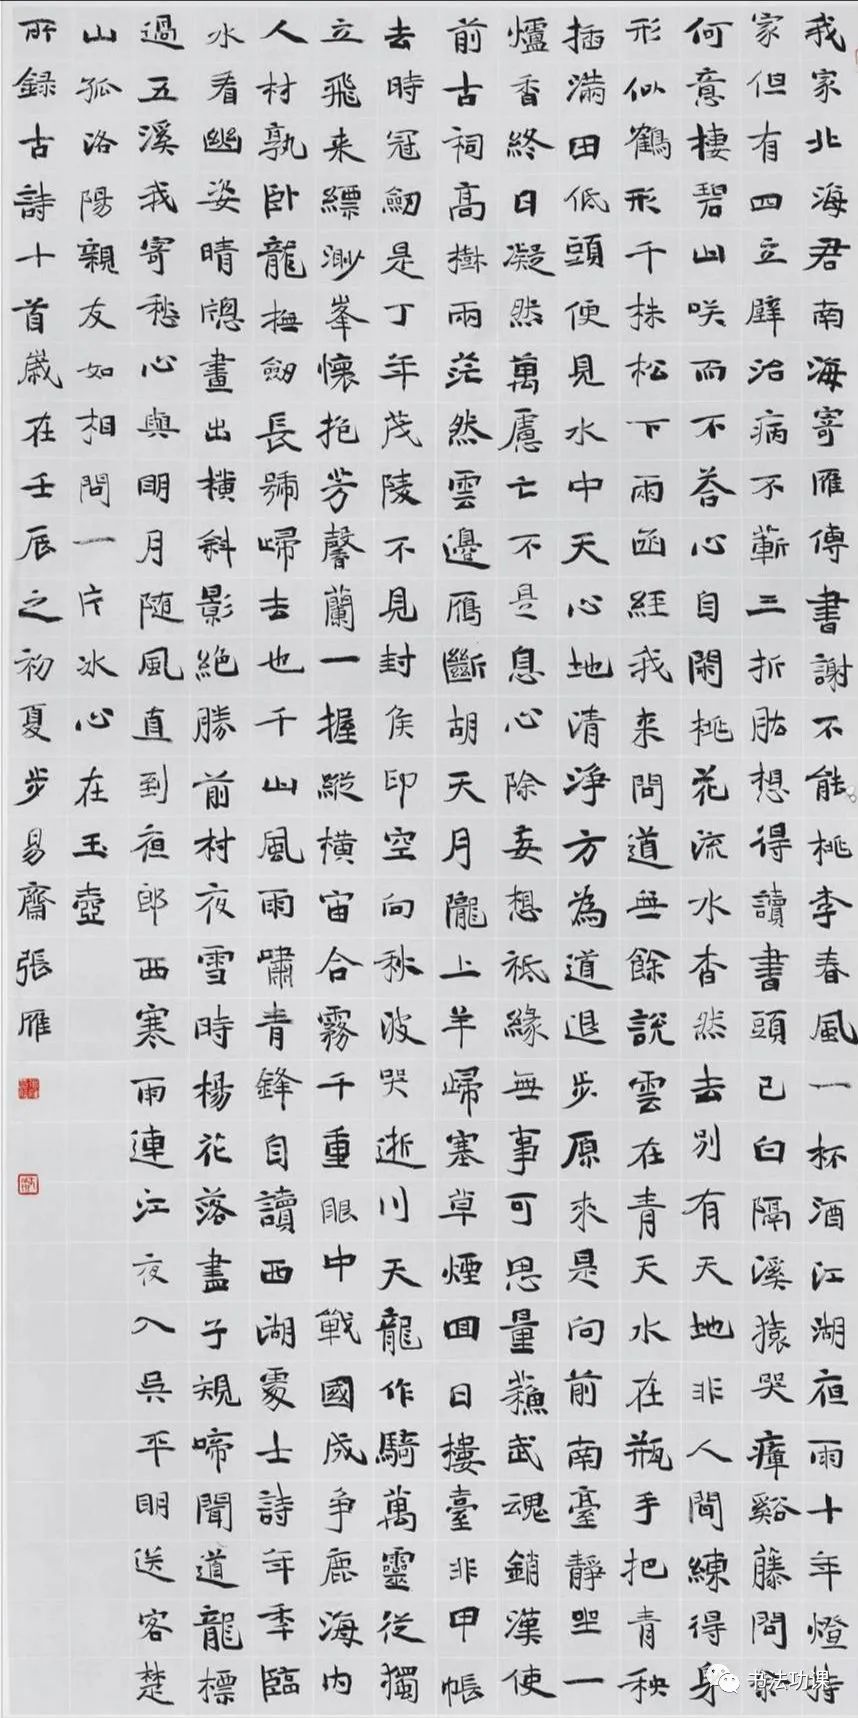 我家北海君南海寄雁傳書謝不能桃李春風一杯酒江湖夜雨十年燈持
家但有四立壁治病不蘄三折肱想得讀書頭已白隔溪猿哭瘴谿藤問余
何意棲碧山咲而不荅心自閑桃花流水杳然去別有天地非人間練得身
形似鶴形千株松下兩函經我来問道無餘說雲在青天水在瓶手把青秧
插滿田低頭便見水中天心地清淨方為道退步原來是向前南臺靜坐一
爐香終日凝然萬慮亡不是息心除妄想祗緣無事可思量蘇武魂銷漢使
前古祠高樹兩茫然雲邊雁斷胡天月隴上羊歸塞草煙回日樓臺非甲帳
去時冠劒是丁年茂陵不見封侯印空向秋波哭逝川天龍作騎萬靈從獨
立飛来縹渺峯懷抱芳馨蘭一握縱橫宙合霧千重眼中戰國成争鹿海内
人材孰卧龍撫劒長號歸去也千山風雨嘯青鋒自讀西湖處士詩年季臨
水看幽姿晴窗畫出橫斜影絕勝前村夜雪時楊花落盡子規啼聞道龍標
過五溪我寄愁心與明月随風直到夜郎西寒雨連江夜入吳平明送客楚
山孤洛陽親友如相問一片冰心在玉壺
所録古詩十首歲在壬辰之初夏步易齋張雁
书法功课